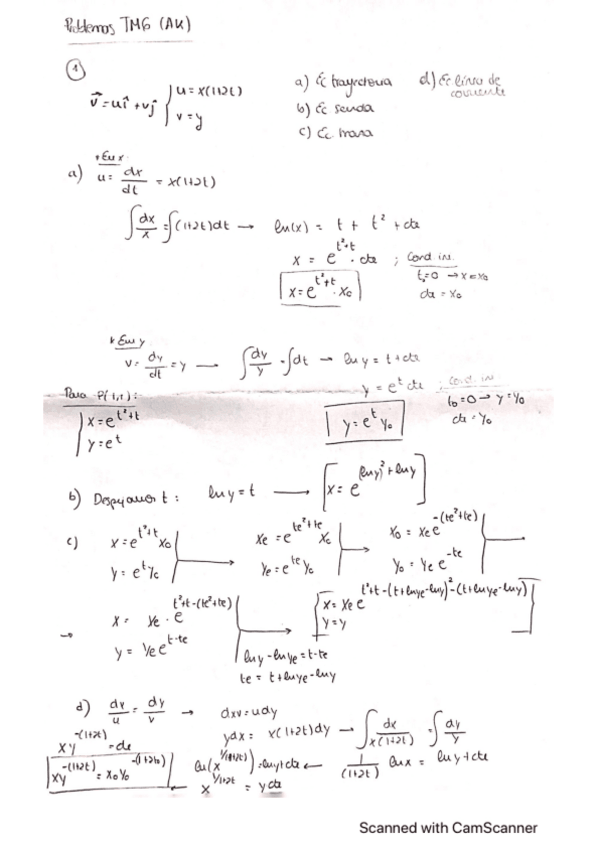 Problemas TM6 (AK)
①
v⃗ = uî + vĵ { u = x(1+2t)
v = y
a) Ec trayectoria
b) Ec senda
c) Ec traza
d) Ec línea de corriente
a) * Eu x
u = dx/dt = x(1+2t)
∫ dx/x = ∫(1+2t)dt → ln(x) = t + t² + cte
x = e^(t²+t) · cte ; Cond. in.
t₀=0 → x = x₀
cte = x₀
x = e^(t²+t) · x₀
* Eu y
v = dy/dt = y → ∫ dy/y = ∫dt → ln y = t + cte
y = e^t cte ; Cond. in
t₀ = 0 → y = y₀
cte = y₀
y = e^t y₀
Para P(1,1):
x = e^(t²+t)
y = e^t
b) Despejamos t : ln y = t → x = e^((ln y)² + ln y)
c) x = e^(t²+t) x₀
y = e^t y₀
xe = e^(te²+te) x₀
ye = e^te y₀
x₀ = xe e^-(te²+te)
y₀ = ye e^-te
→ x = xe · e^(t²+t-(te²+te))
y = ye e^(t-te)
ln y - ln ye = t - te
te = t + ln ye - ln y
x = xe e^(t²+t-(t+ln ye-ln y)²-(t+ln ye-ln y))
y = y
d) dx/u = dy/v → dx v = u dy
y dx = x(1+2t)dy → ∫ dx/(x(1+2t)) = ∫ dy/y
1/(1+2t) ln x = ln y + cte
ln(x^(1/(1+2t))) = ln y + cte ←
x^(1/1+2t) = y cte
x y^-(1+2t) = cte
x y^-(1+2t) = x₀ y₀^-(1+2t₀)
Scanned with CamScanner